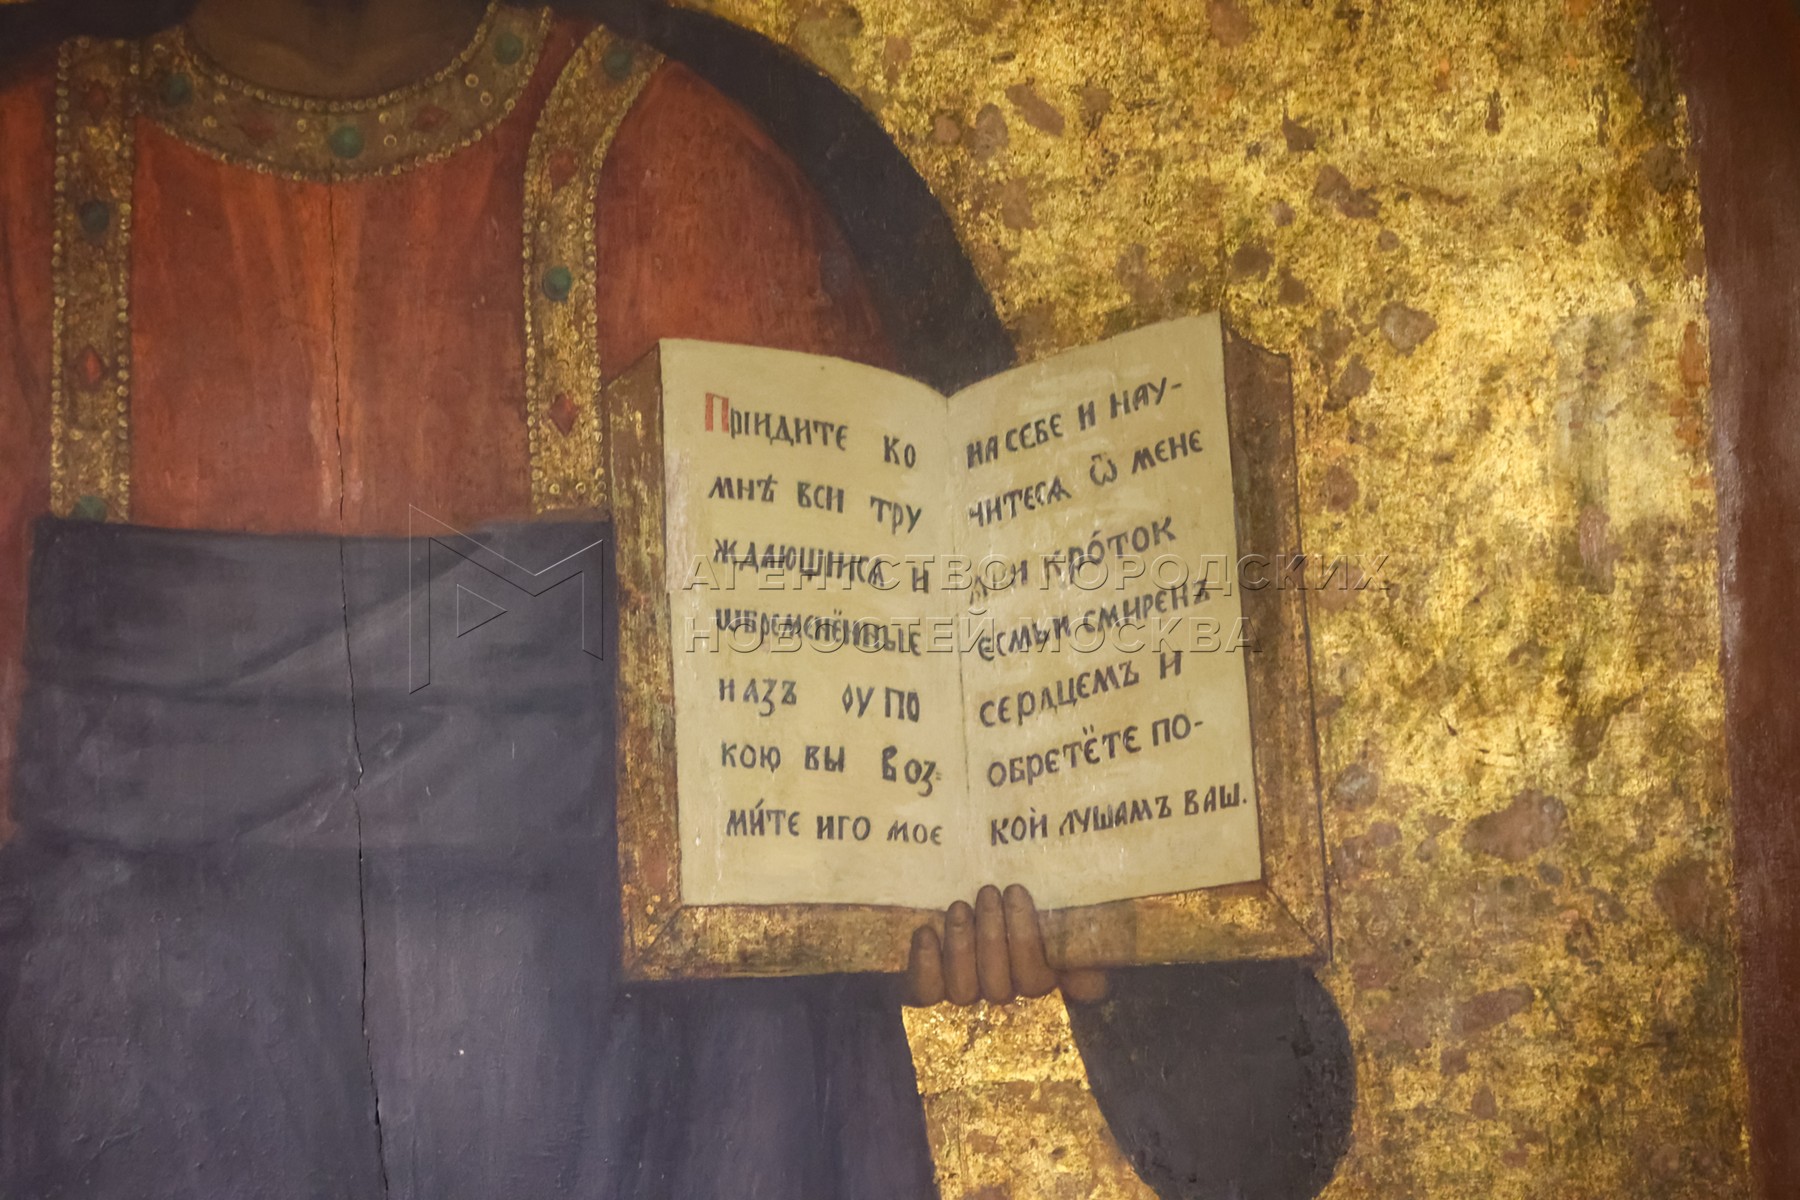 Прїидите ко
мнѣ вси тру
ждающиися и
ѡбременённые
и азъ оупо
кою вы воз=
ми́те иго мое
на себе и нау-
читеся ѿ мене
кро́ток
есмь и смиренъ
сердцемъ и
обретёте по-
кой душамъ ваш.
АГЕНТСТВО ГОРОДСКИХ
НОВОСТЕЙ МОСКВА